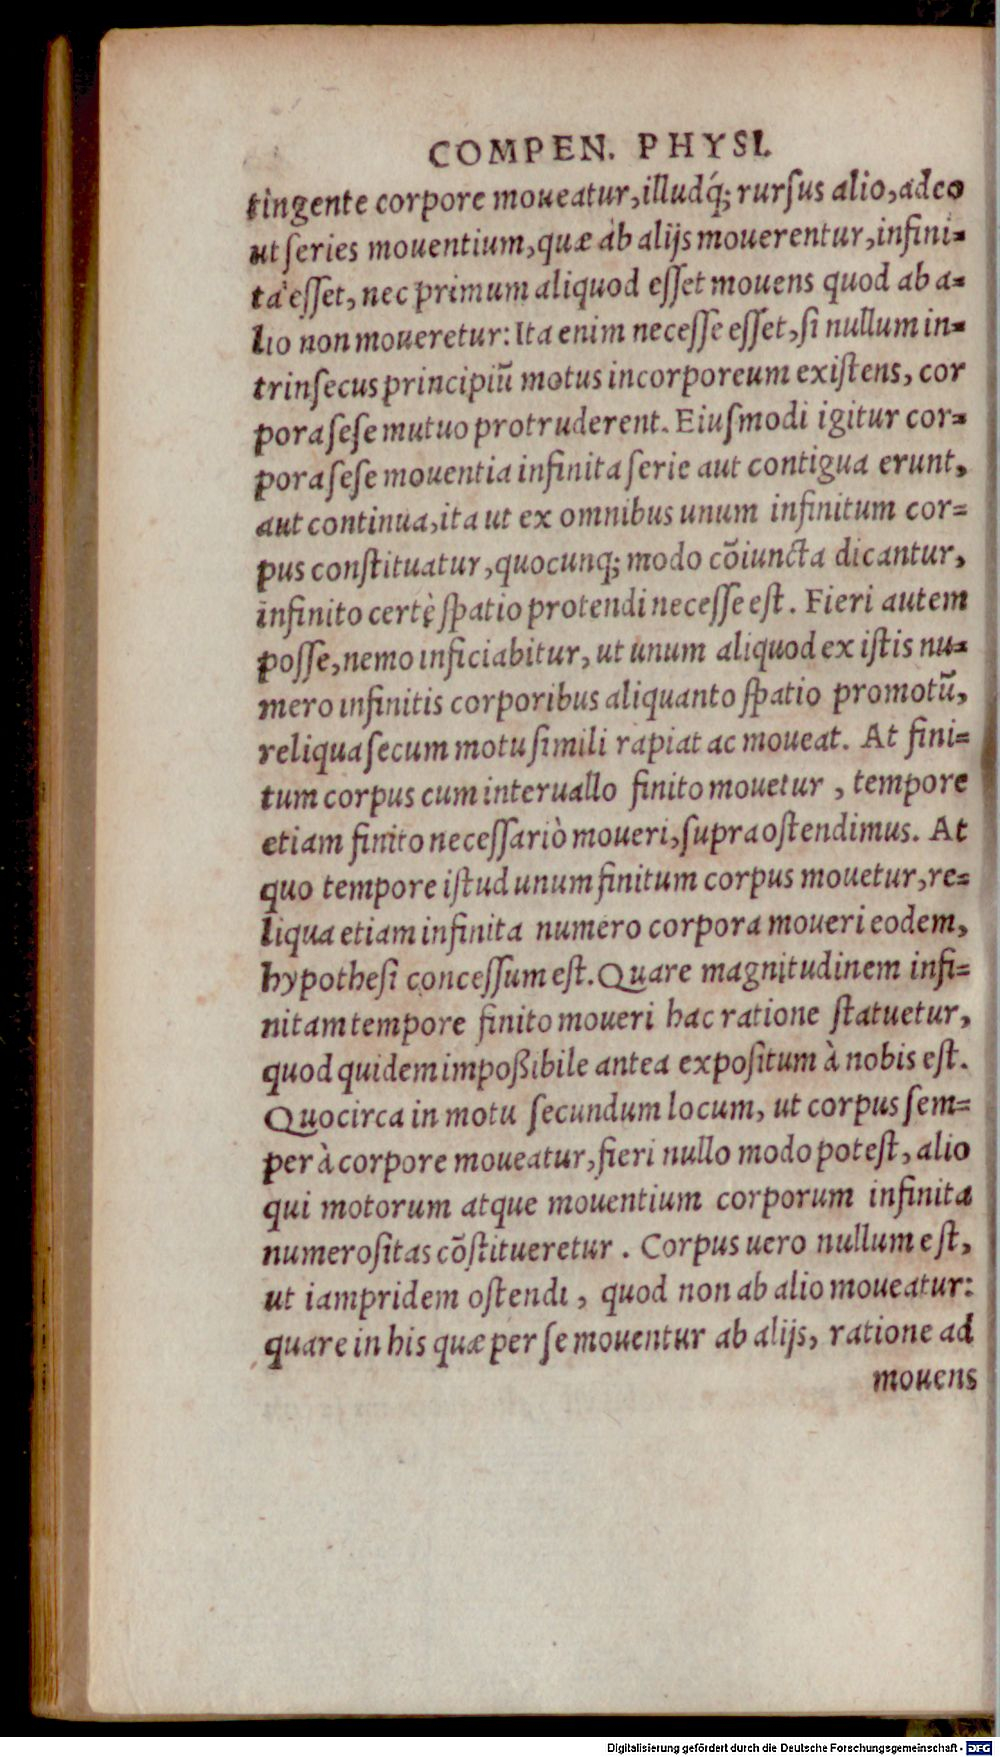 COMPEN. PHYSI.
tingente corpore moueatur, illudq́; rursus alio, adeo
ut series mouentium, quæ ab alijs mouerentur, infini=
ta esset, nec primum aliquod esset mouens quod ab a=
lio non moueretur: Ita enim necesse esset, si nullum in=
trinsecus principiũ motus incorporeum existens, cor
pora sese mutuo protruderent. Eiusmodi igitur cor=
pora sese mouentia infinita serie aut contigua erunt,
aut continua, ita ut ex omnibus unum infinitum cor=
pus constituatur, quocunq; modo cõiuncta dicantur,
infinito certè spatio protendi necesse est. Fieri autem
posse, nemo inficiabitur, ut unum aliquod ex istis nu=
mero infinitis corporibus aliquanto spatio promotũ,
reliqua secum motu simili rapiat ac moueat. At fini=
tum corpus cum interuallo finito mouetur, tempore
etiam finito necessariò moueri, supra ostendimus. At
quo tempore istud unum finitum corpus mouetur, re=
liqua etiam infinita numero corpora moueri eodem,
hypothesi concessum est. Quare magnitudinem infi=
nitam tempore finito moueri hac ratione statuetur,
quod quidem impoßibile antea expositum à nobis est.
Quocirca in motu secundum locum, ut corpus sem=
per à corpore moueatur, fieri nullo modo potest, alio
qui motorum atque mouentium corporum infinita
numerositas cõstitueretur. Corpus uero nullum est,
ut iampridem ostendi, quod non ab alio moueatur:
quare in his quæ per se mouentur ab alijs, ratione ad
mouens
Digitalisierung gefördert durch die Deutsche Forschungsgemeinschaft - DFG